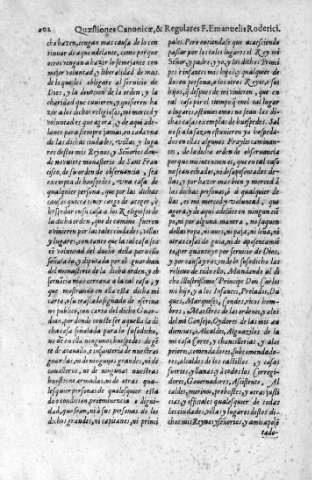 202 Quæstiones Canonicæ, & Regulares F. Emanuelis Roderici.
cha hazen, tengan mas causa de la con
tinuar de aqui adelante, como porque
otros vengan a hazer lo semejante con
mejor voluntad, y liberalidad de mas
de lo quales obligare al seruicio de
Dios, y la deuocion de la orden, y la
charidad que tuuieren, y quisieren ha
zer a los dichos religiosos, mi merced y
voluntad es que agora, y de aqui ade-
lante para siempre jamas, en cada vna
de las dichas ciudades, villas, y luga
res destos mis Reynos, y Señorios don-
de vuiere monasterio de Sant Fran
cisco, de su orden de obseruancia, sea
exempta de huespedes, vna casa de
qualquier persona, que por las dichas
casas quiera tener cargo de acoger, &
hospedar en su casa a los Religiosos de
la dicha orden, que de camino fueren
o vinieren por las tales ciudades, villas
y lugares, con tanto que la tal casa sea
de voluntad del dueño della para ello
señalada, y diputada por el guardian
del monasterio de la dicha orden, y ob-
seruancia mas cercano a la tal casa, y
que mostrando en ella esta dicha mi
carta, o su traslado signado de escriua
no publico, con carta del dicho Guar-
dian, por donde conste ser aquella la di
cha casa señalada para lo susodicho,
no se den ella ningunos huespedes de gẽ
te de acauallo, o capitanes de nuestras
guardas, ni de ningunos grandes, ni de
caualleros, ni de ningunas nuestras
huestes ni armadas, ni de otras qua-
lesquier personas de qualesquier esta
do condicion, preeminencia o digni-
dad, que sean, ni a sus personas de los
dichos grandes, ni capitanes, ni princi
pales. Pero entiendase que acaesciendo
passar por los tales lugares el Rey mi
Señor, y padre, y yo, y los dichos Princi
pes o infantes mis hijos, y qualquier de
los en persona, a otros que fueren Reyes
sus hijos, que despues de mi vinieren, que en
tal caso por el tiempo que en el tal lugar
o lugares estuuieremos no sean las di-
chas casas exemptas de huespedes. Sal
uo si a la sazon estuuieren ya hospeda-
dos en ellas algunos Frayles caminan-
tes, de la dicha orden de obseruancia
porque mi intencion es, que en tal caso
no sean echados, ni desaposentados de
llas, y por hazer mas bien y merced a
las dichas personas, o a qualquier de
llas, es mi merced y voluntad, que
agora, y de aqui adelante en ningun tiẽ
po, ni por alguna manera, no saquen
dellas ropa, ni aues, ni paja, ni leña, ni
otras cosas de guia, ni de aposentamiẽ
to, que yo quiero por seruicio de Dios,
y por causa y razon de lo susodicho las
relieuo de todo ello. Mandando al di
cho illustrissimo Principe Don Carlos
mi hijo, y a los Infantes, Prelados, Du
ques, Marqueses, Condes, ricos hom-
bres, Maestres de las ordenes, y a los
del mi Consejo, Oydores de las mis au
diencias, Alcaldes, Alguaziles de la
mi casa Corte, y chancillerias, y a los
priores, comendadores, subcomendado-
res, alcaydes de los castillos, y casas
fuertes, y llanas, y a todos los corregi-
dores, Gouernadores, Assistente, Al
caldes, merinos, prebostes, y otras justi
cias, y officiales qualesquier de todas
las ciudades, villas y lugares destos di-
chos mis Reynos y Señorios, y a mi apos
tado-